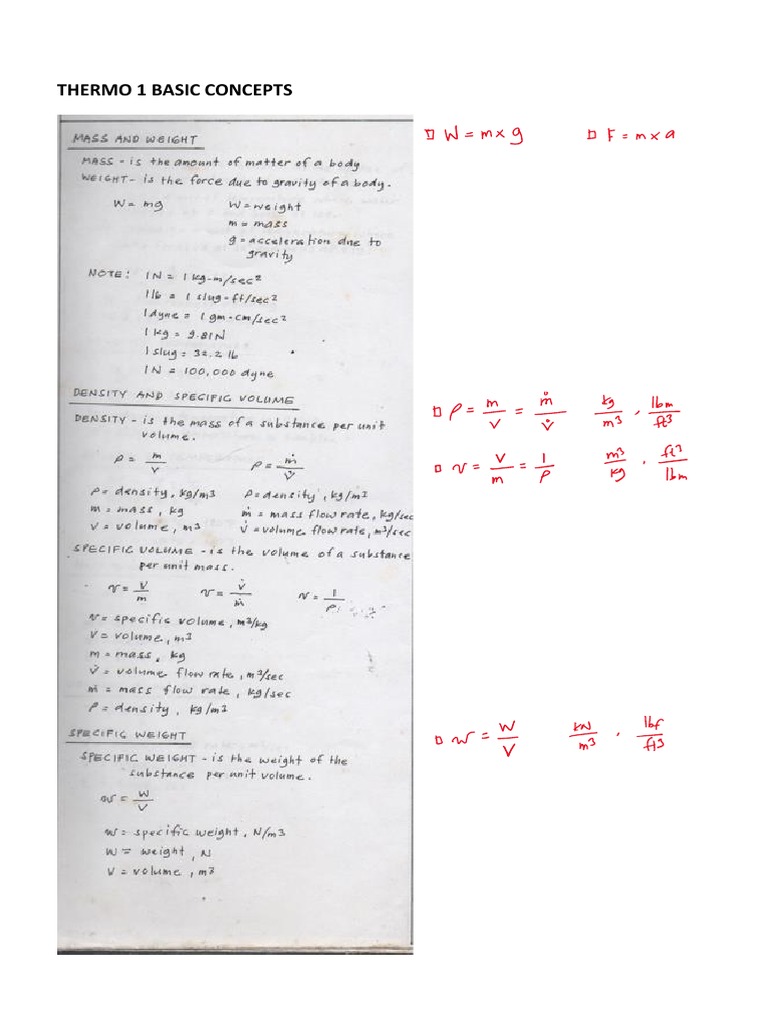 THERMO 1 BASIC CONCEPTS
MASS AND WEIGHT
MASS - is the amount of matter of a body
WEIGHT - is the force due to gravity of a body.
W = mg W = weight
m = mass
g = acceleration due to
gravity
NOTE: 1N = 1 kg-m/sec²
1lb = 1 slug-ft/sec²
1dyne = 1 gm-cm/sec²
1 kg = 9.81N
1 slug = 32.2 lb
1N = 100,000 dyne
DENSITY AND SPECIFIC VOLUME
DENSITY - is the mass of a substance per unit
volume.
ρ = m/V ρ = ṁ/V̇
ρ = density, kg/m³ ρ = density, kg/m³
m = mass, kg ṁ = mass flow rate, kg/sec
V = volume, m³ V̇ = volume flow rate, m³/sec
SPECIFIC VOLUME - is the volume of a substance
per unit mass.
v = V/m v = V̇/ṁ v = 1/ρ
v = specific volume, m³/kg
V = volume, m³
m = mass, kg
V̇ = volume flow rate, m³/sec
ṁ = mass flow rate, kg/sec
ρ = density, kg/m³
SPECIFIC WEIGHT
SPECIFIC WEIGHT - is the weight of the
substance per unit volume.
w = W/V
w = specific weight, N/m³
W = weight, N
V = volume, m³
□ W = m x g □ F = m x a
□ ρ = m/V = ṁ/V̇ kg/m³ , lbm/ft³
□ v = V/m = 1/ρ m³/kg , ft³/lbm
□ w = W/V kN/m³ , lbf/ft³